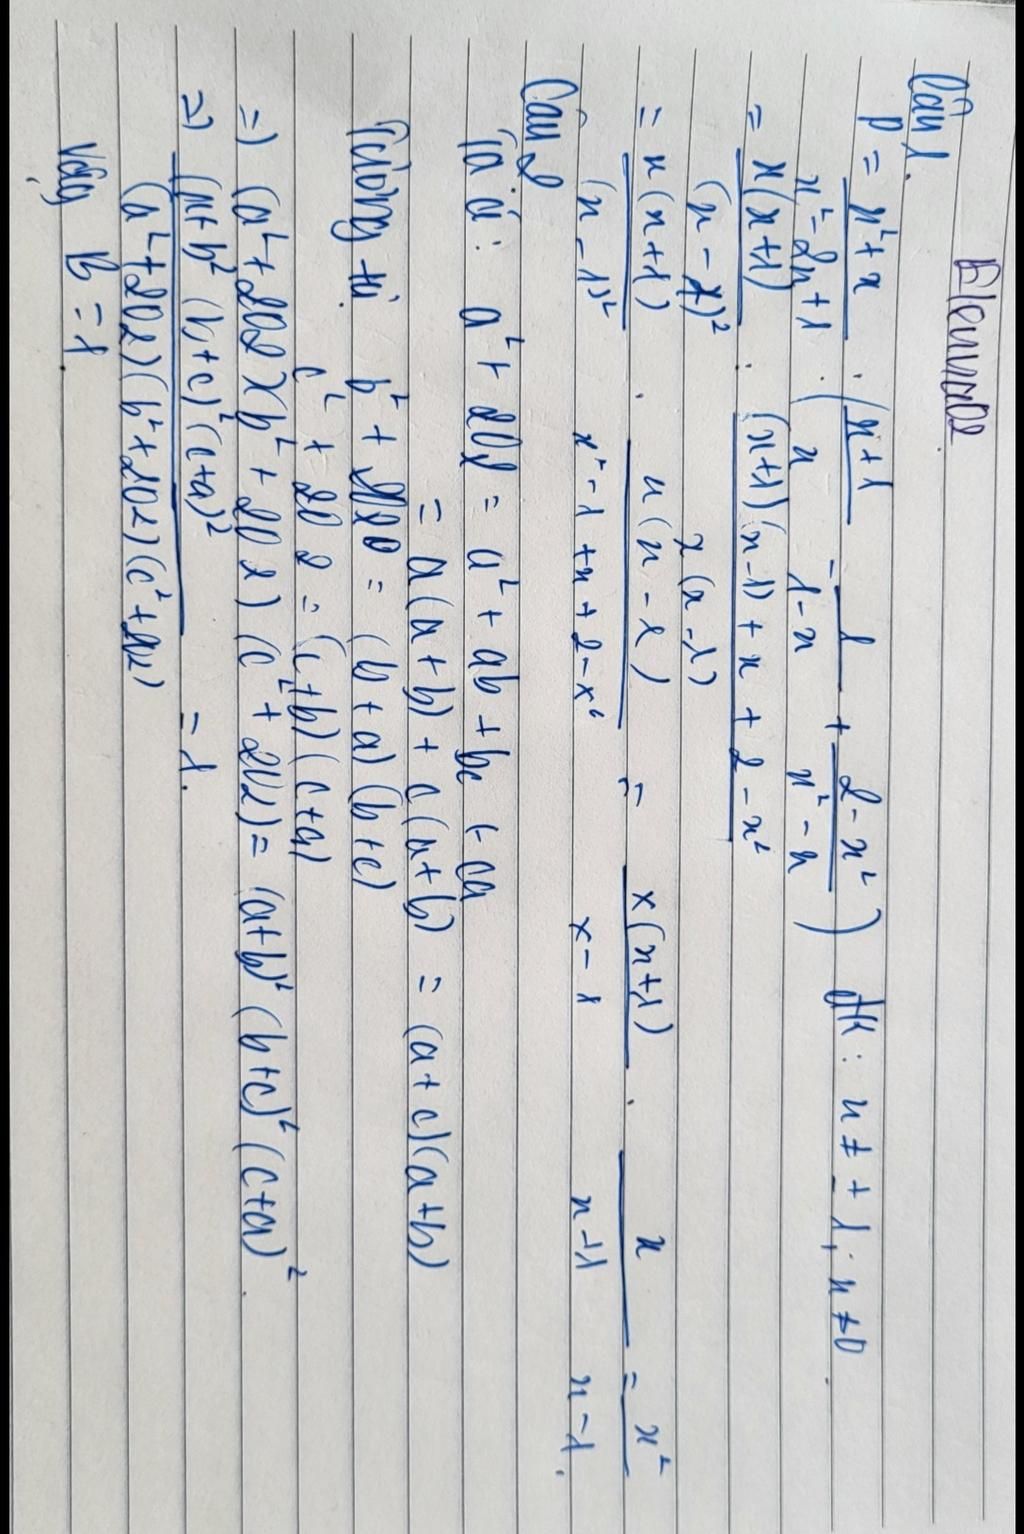 Câu 1.
P = x²+x / x²-2x+1 : ( x+1 / x - 1 / 1-x + 2-x² / x²-x ) đk: x ≠ ± 1; x ≠ 0.
= x(x+1) / (x-1)² : (x+1)(x-1) + x + 2 - x² / x(x-1)
= x(x+1) / (x-1)² . x(x-1) / x²-1+x+2-x² = x(x+1) / x-1 . x / x+1 = x² / x-1.
Câu 2
Ta có: a² + 202 = a² + ab + bc + ca
= a(a+b) + c(a+b) = (a+c)(a+b)
Tương tự b² + 2020 = (b+a)(b+c)
c² + 202 = (c+b)(c+a)
=) (a²+202)(b²+202)(c²+202) = (a+b)²(b+c)²(c+a)².
=) (a+b)²(b+c)²(c+a)² / (a²+202)(b²+202)(c²+202) = 1.
Vậy B = 1.